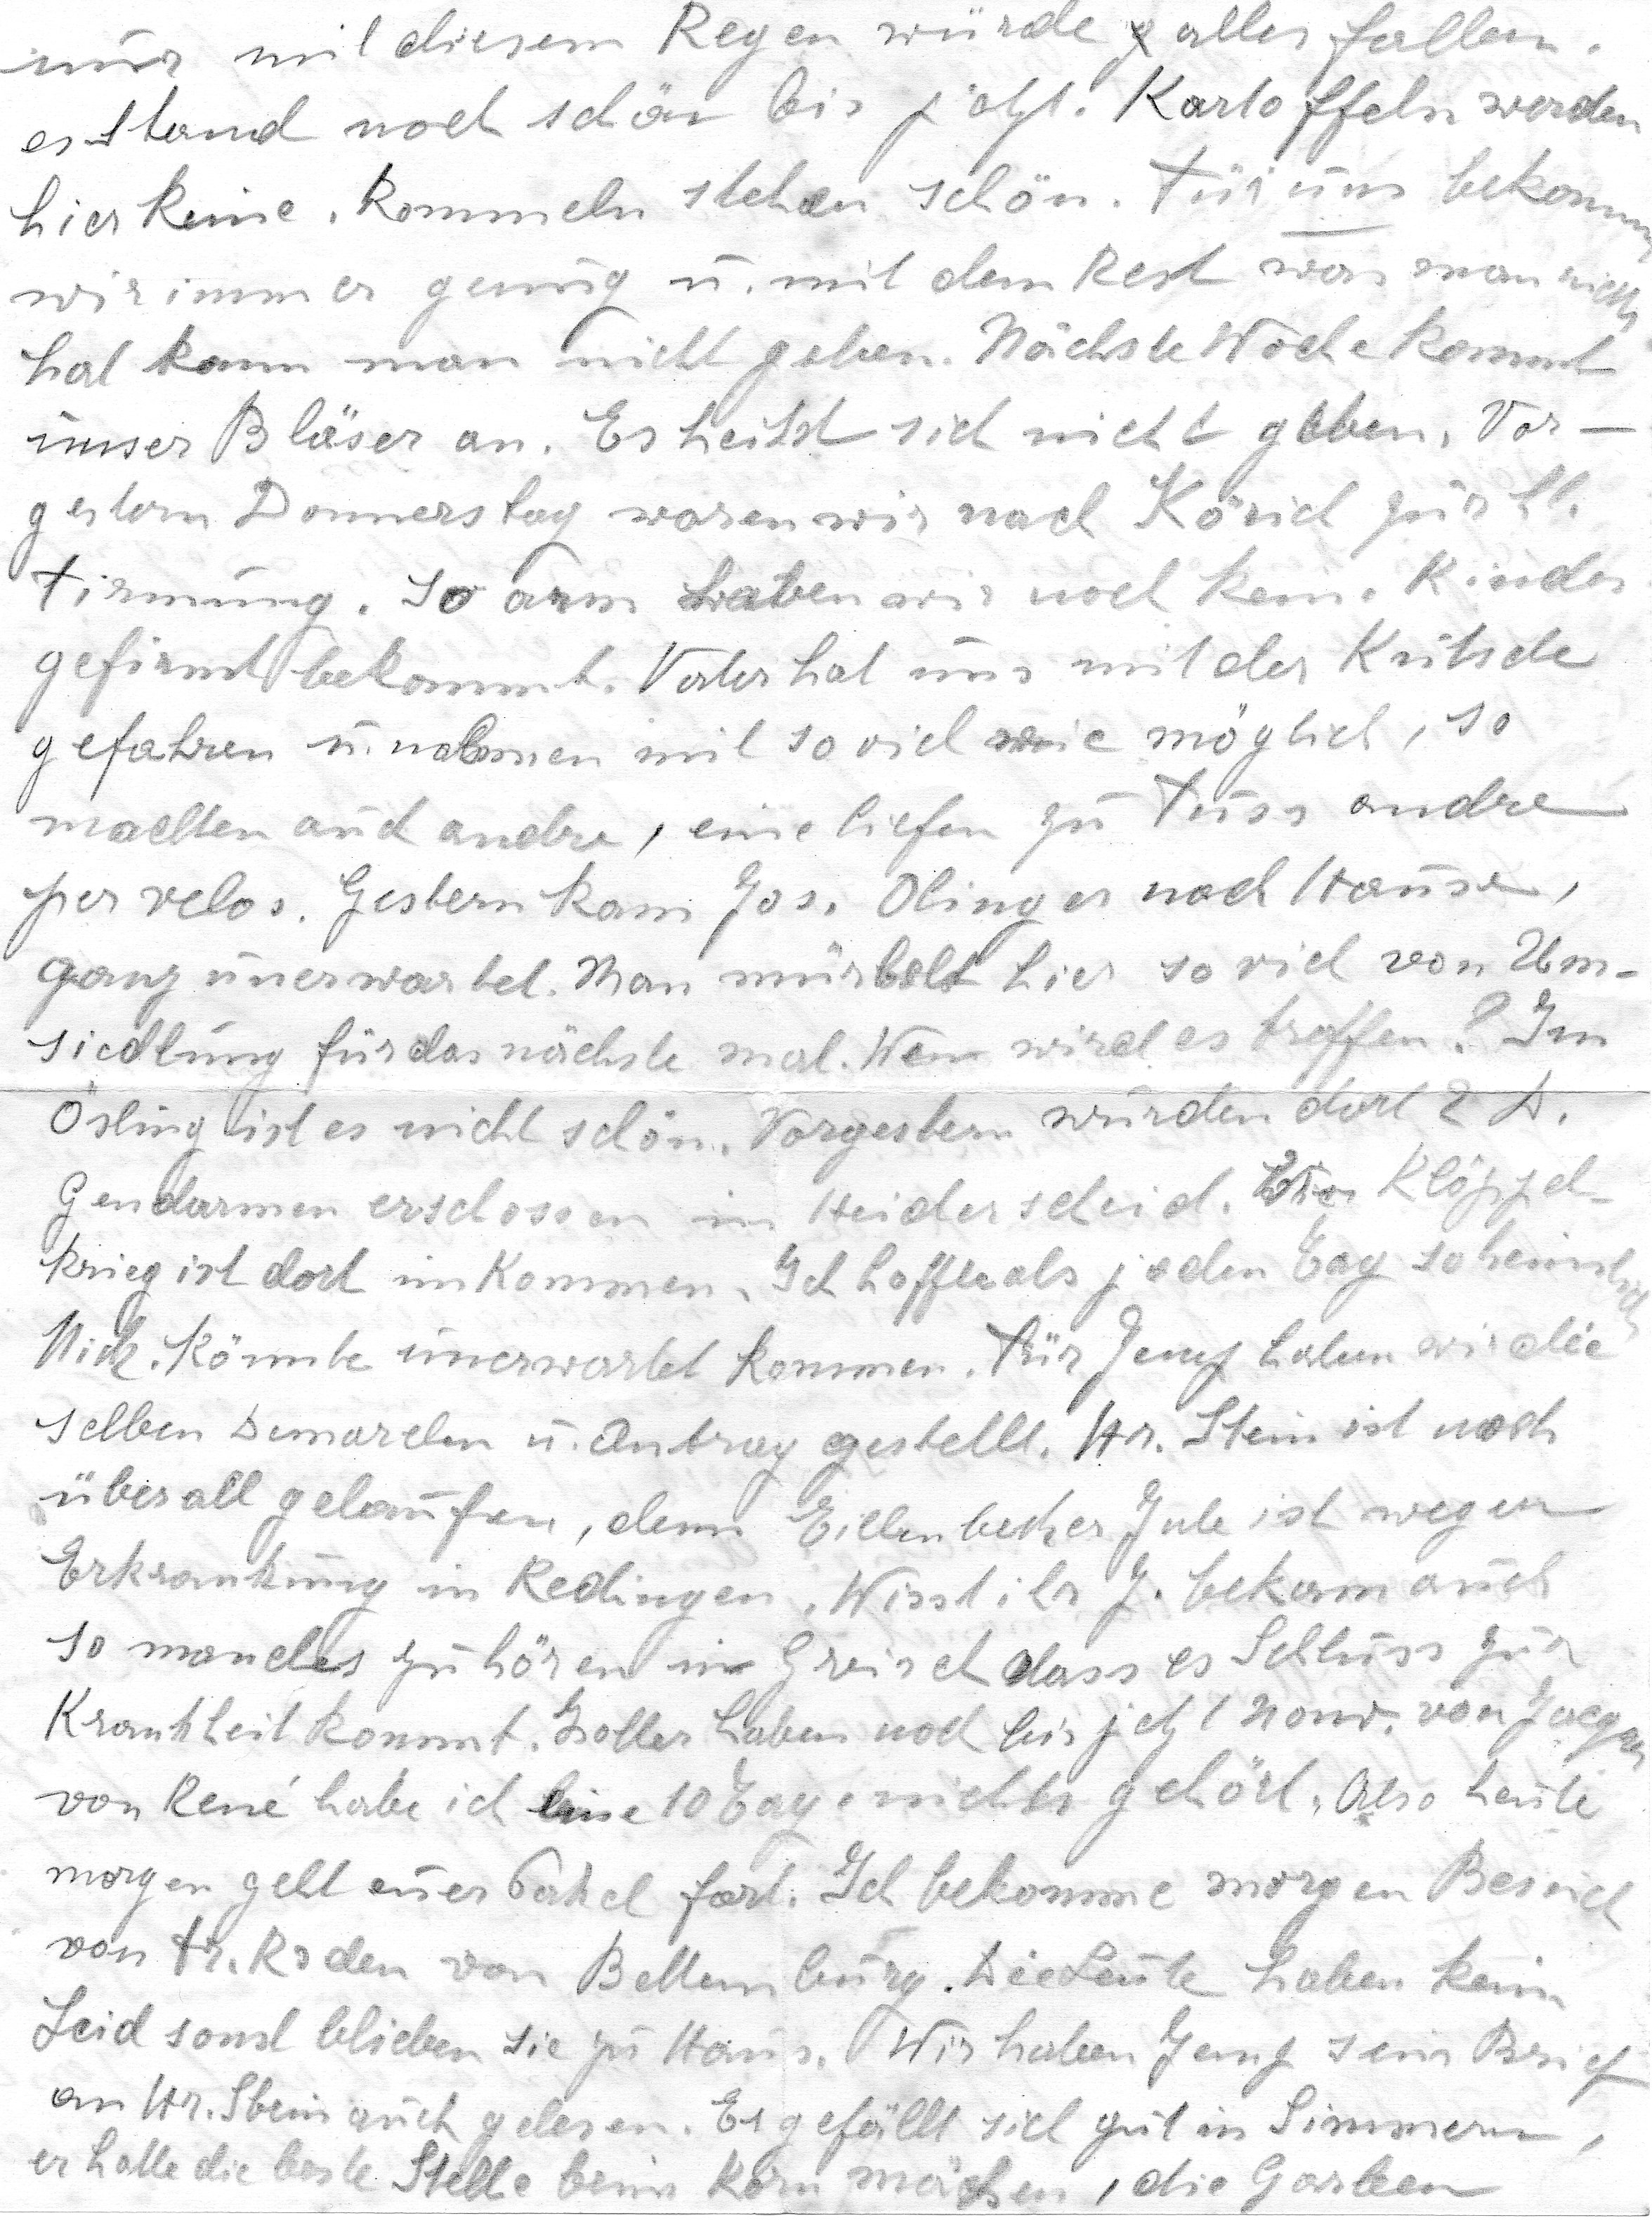 nur mit diesem Regen würde alles fallen.
es stand noch schön bis jetzt. Kartoffeln werden
hier keine. Rommeln stehen schön. Für uns bekommen
wir immer genug u. mit dem Rest was man nicht
hat kann man nicht geben. Nächste Woche kommt
unser Bläser an. Es heisst sich nicht geben. Vor-
gestern Donnerstag waren wir nach Körich zur hl.
Firmung. So arm haben wir noch kein. Kinder
gefirmt bekommt. Vater hat uns mit der Kutsche
gefahren u. nahmen mit so viel wie möglich, so
machten auch andre, eine liefen zu Fuss andre
per velos. Gestern kam Jos. Olinger nach Hause,
ganz unerwartet. Man mürbelt hier so viel von Um-
siedlung für das nächste mal. Wem wird es treffen? Im
Ösling ist es nicht schön. Vorgestern wurden dort 2 D.
Gendarmen erschossen in Heiderscheid. Klöppel-
krieg ist dort im Kommen. Ich hoffe als jeden Tag so heimlich
Nick. könnte unerwartet kommen. Für Jeng haben wir die
selben Demarchen u. Antrag gestellt. Hr. Stein ist noch
überall gelaufen, denn Eillenbecher Jule ist wegen
Erkrankung in Redingen. Wisst ihr J. bekam auch
so manches zu hören in Greisch dass es Schluss zur
Krankheit kommt. haben noch bis jetzt von
von René habe ich eine 10 Tage nichts gehört. Also heute
morgen geht euer Paket fort. Ich bekomme morgen Besuch
von Fr. Roden von Bettemburg. Die Leute haben kein
Leid sonst blieben sie zu Haus. Wir haben Jeng sein Brief
an Hr. Stein auch gelesen. Er gefällt sich gut in Simmern,
er hatte die beste Stelle beim Korn mächen, die Garben